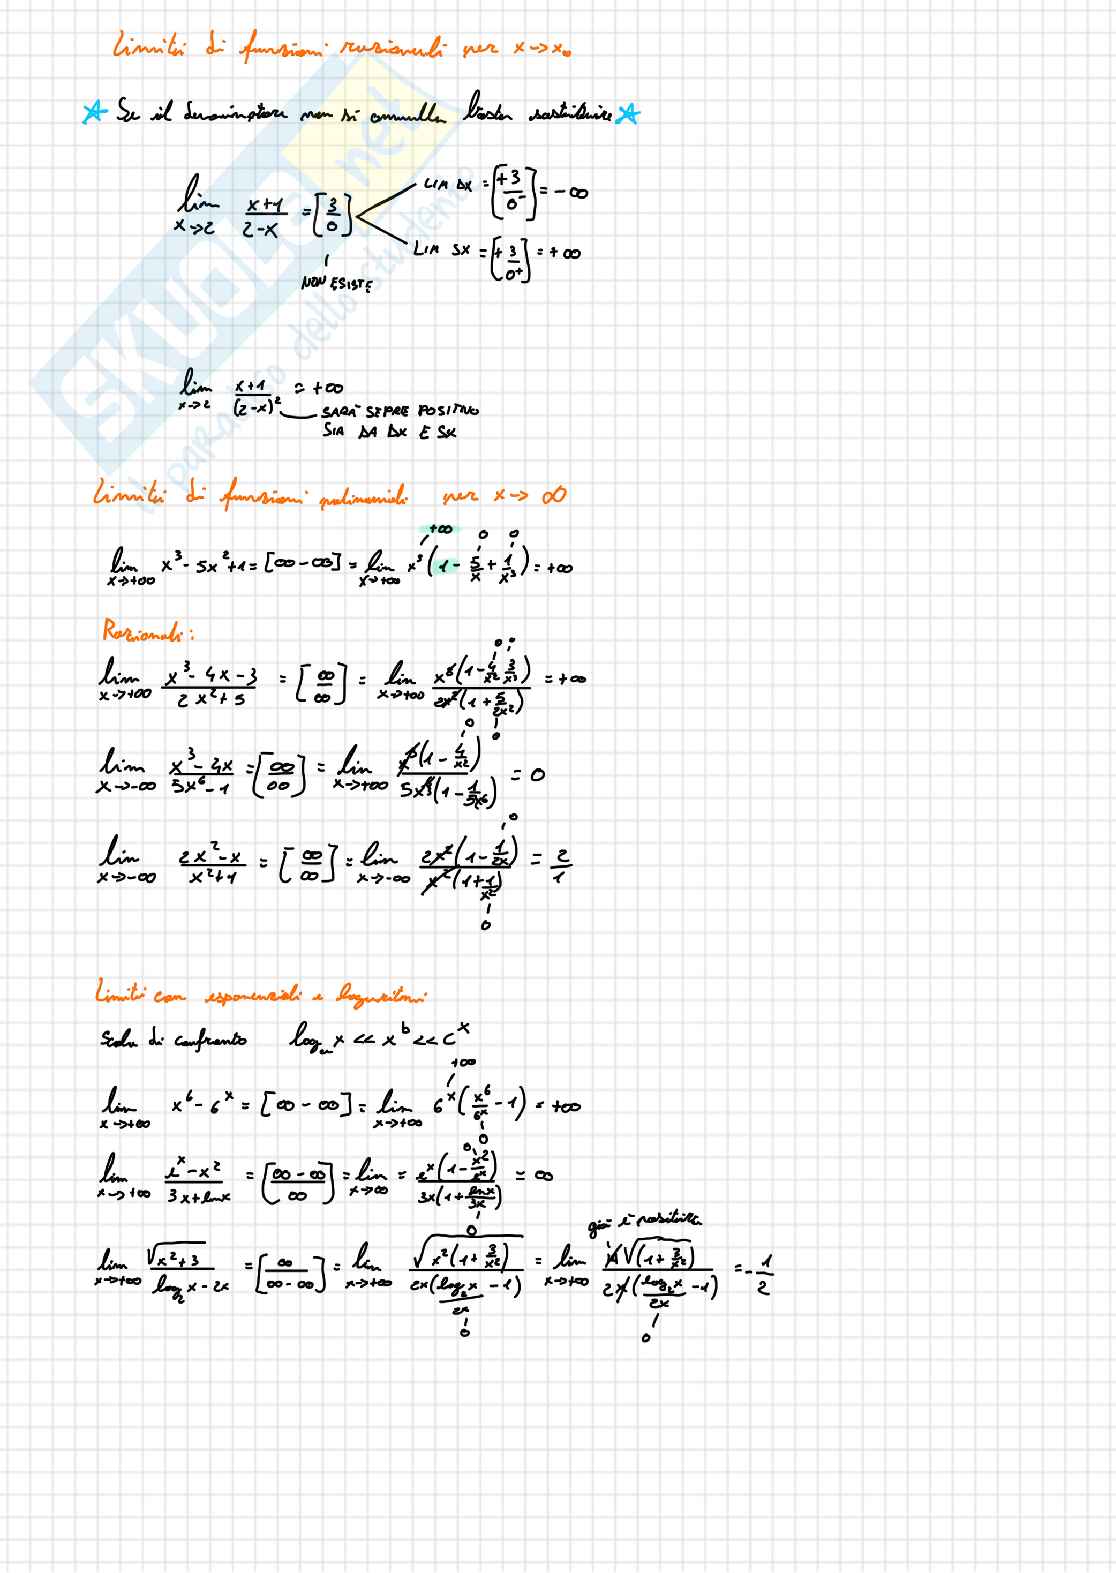 Limiti di funzioni razionali per x→x₀
Se il denominatore non si annulla basta sostituire
lim x→2 (x+1)/(2-x) = [3/0]
LIM DX = [+3/0⁻] = -∞
LIM SX = [+3/0⁺] = +∞
NON ESISTE
lim x→2 (x+1)/(2-x)² = +∞
SARÀ SEPRE POSITIVO
SIA DA DX E SX
Limiti di funzioni polinomiali per x→ ∞
+∞ 0 0
lim x→+∞ x³-5x²+1 = [∞-∞] = lim x→+∞ x³(1 - 5/x + 1/x³) = +∞
Razionali:
0 0
lim x→+∞ (x³-4x-3)/(2x²+5) = [∞/∞] = lim x→+∞ x³(1-4/x² 3/x³)/2x²(1+5/2x²) = +∞
0 0
lim x→-∞ (x³-4x)/(5x⁶-1) = [∞/∞] = lim x→+∞ x³(1-4/x²)/5x⁶(1-1/5x⁶) = 0
0
lim x→-∞ (2x²-x)/(x²+1) = [∞/∞] = lim x→-∞ 2x²(1-1/2x)/x²(1+1/x²) = 2/1
0
Limiti con esponenziali e logaritmi
Scala di confronto logₐx << xᵇ << cˣ
+∞
lim x→+∞ x⁶-6ˣ = [∞-∞] = lim x→+∞ 6ˣ(x⁶/6ˣ - 1) = +∞
0
0
lim x→+∞ (eˣ-x²)/(3x+lnx) = [(∞-∞)/∞] = lim x→∞ = eˣ(1-x²/eˣ)/3x(1+lnx/3x) = ∞
0
già è positiva
lim x→+∞ √(x²+3)/(log₂x-2x) = [∞/(∞-∞)] = lim x→+∞ √(x²(1+3/x²))/2x(log₂x/2x - 1) = lim x→+∞ x√(1+3/x²)/2x(log₂x/2x - 1) = -1/2
0 0
SKUOLA.net
Il paradiso dello studente